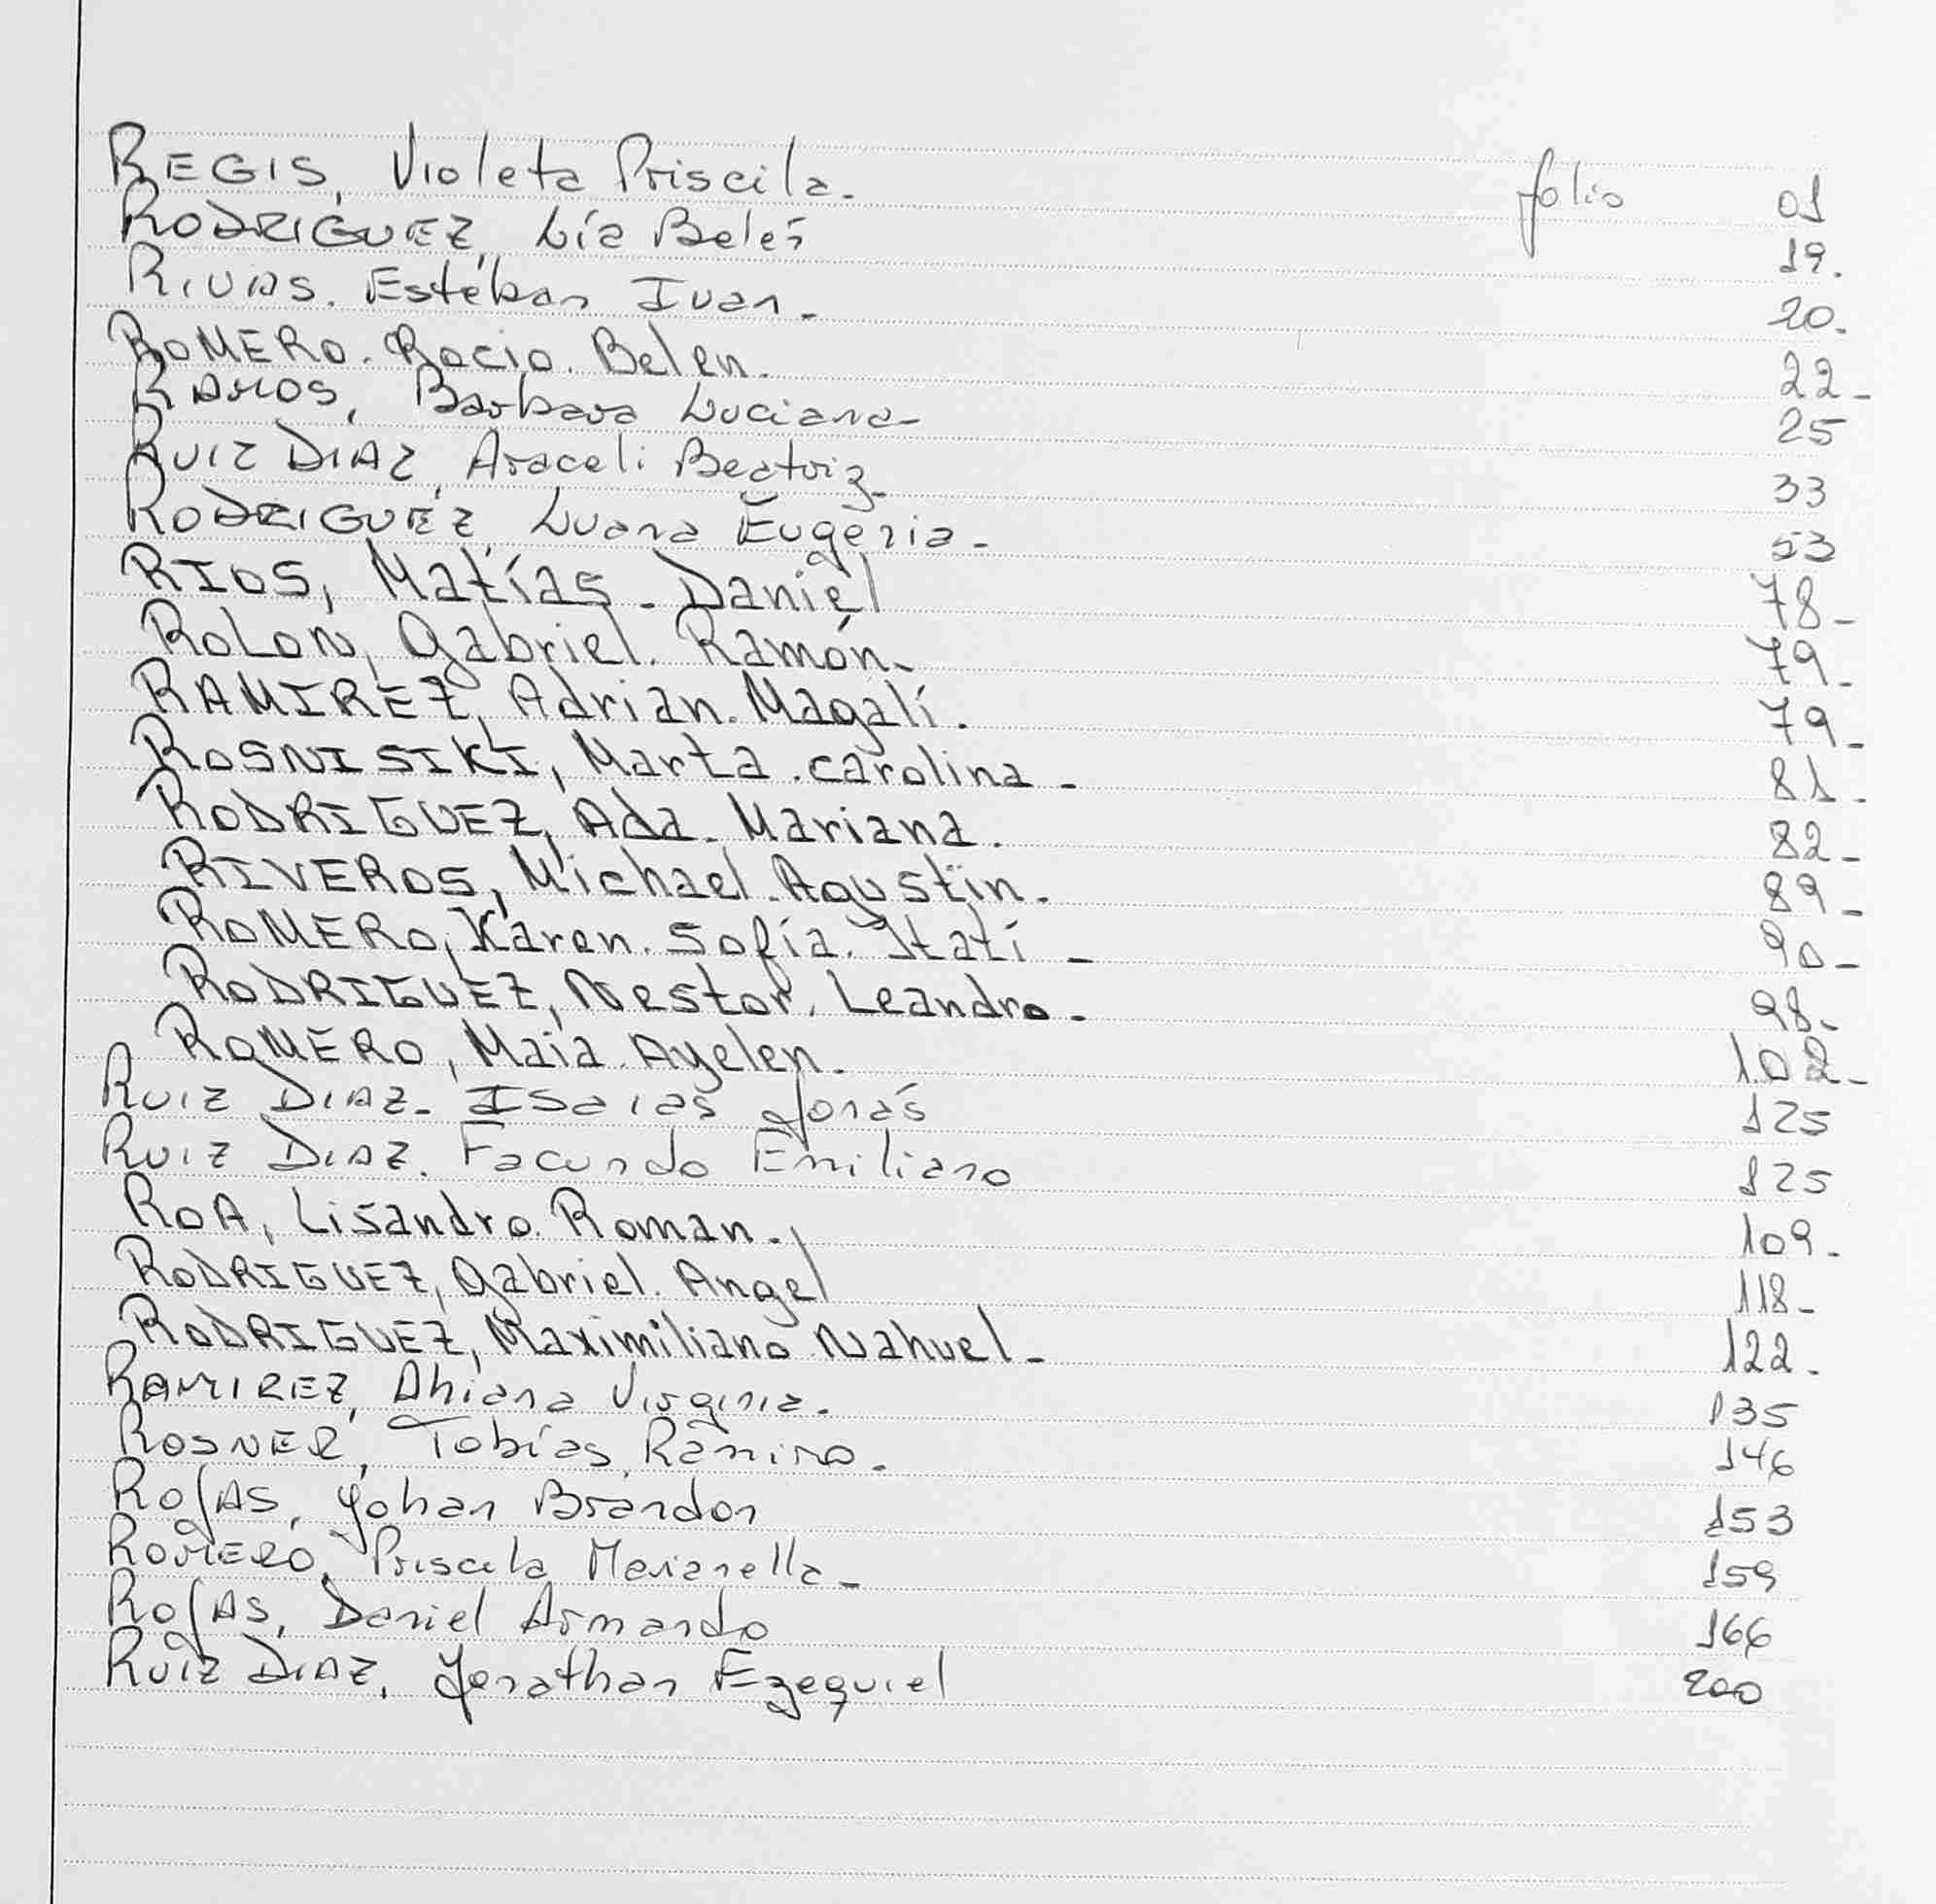 REGIS, Violeta Priscila. folio 01
RODRIGUEZ, Lía Belén 19.
RIVAS. Estéban Ivan - 20.
ROMERO. Rocio. Belen. 22-
RAMOS, Barbara Luciana- 25
RUIZ DIAZ, Araceli Beatriz- 33
RODRIGUEZ, Luana Eugenia- 53
RIOS, Matías - Daniel 78-
ROLON, Gabriel. Ramón- 79-
RAMIREZ, Adrian. Magalí. 79-
ROSNISIKI, Marta. carolina - 81-
RODRIGUEZ, Ada. Mariana. 82-
RIVEROS, Michael. Agustin. 89-
ROMERO, Karen. Sofía. Itatí - 90-
RODRIGUEZ, Nestor. Leandro. 98-
ROMERO, Maia. Ayelen. 102-
RUIZ DIAZ- ISaias Jonás 125
RUIZ DIAZ. Facundo Emiliano 125
ROA, Lisandro. Roman. 109-
RODRIGUEZ, Gabriel. Angel 118-
RODRIGUEZ, Maximiliano Nahuel- 122.
RAMIREZ, Ahiana Virginia. 135
ROSNER, Tobías, Ramiro. 146
ROJAS, Yohan Brandon 153
ROMERO, Priscila Marianella- 159
ROJAS, Daniel Armando 166
RUIZ DIAZ, Jonathan Ezequiel 200